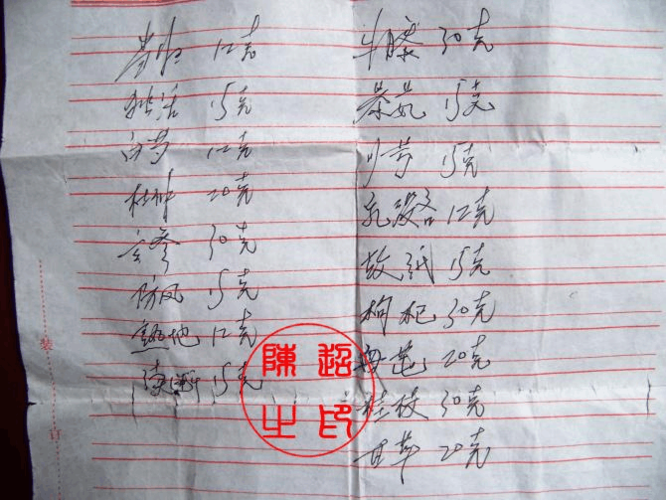 当归 12克
独活 15克
白芍 12克
杜仲 20克
参 30克
防风 15克
熟地 12克
续断 15克
牛膝 30克
秦艽 15克
川芎 15克
乳没各 12克
故纸 15克
枸杞 30克
20克
桂枝 30克
甘草 20克
陳超
之印
装
订